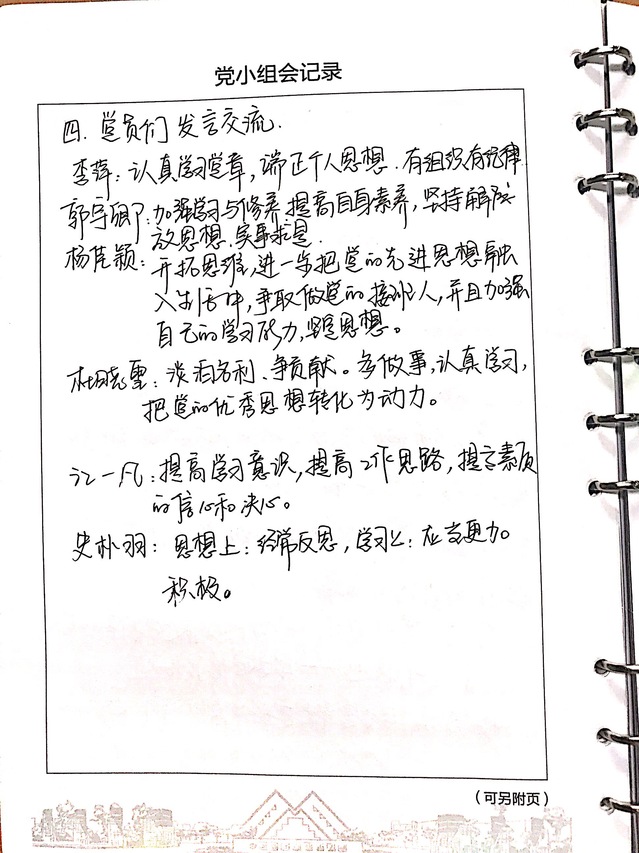 党小组会记录
四. 党员们发言交流.
李萍: 认真学习党章, 端正个人思想. 有组织有纪律
郭宇卿: 加强学习与修养 提高自身素养, 坚持解
放思想. 实事求是.
杨佳颖: 开拓思维, 进一步把党的先进思想融
入生活中, 争取做党的接班人, 并且加强
自己的学习能力, 坚定思想。
杜晓: 淡泊名利、争贡献。多做事, 认真学习,
把党的优秀思想转化为动力。
一凡: 提高学习意识, 提高工作思路, 提高素质
的信心和决心。
史朴羽: 思想上: 经常反思, 学习上: 应当更加
积极。
(可另附页)